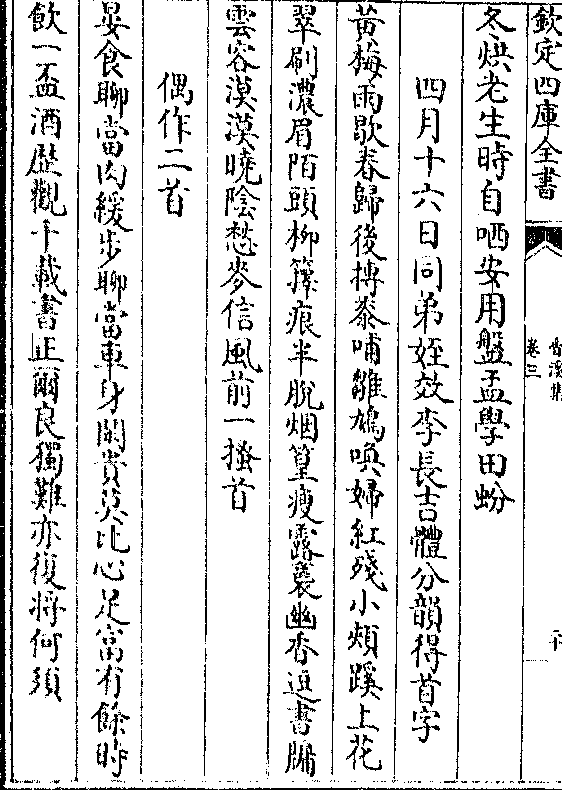 欽定四庫全書
卷三
冬烘老生時自哂安用盤盂學田蚡
四月十六日同弟姪效李長吉體分韻得首字
黄梅雨歇春歸後摶黍哺雛鳩喚婦紅殘小頰蹊上花
翠刷濃眉陌頭柳籜痕半脫烟篁瘦露裛幽香逗書牖
雲容漠漠曉陰愁麥信風前一搔首
偶作二首
晏食聊當肉緩步聊當車身閑貴莫比心足富有餘時
飲一盃酒歴觀千載書正爾良獨難亦復將何須